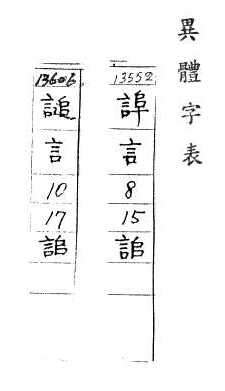 異體字表
13552
言
8
15
13606
言
10
17